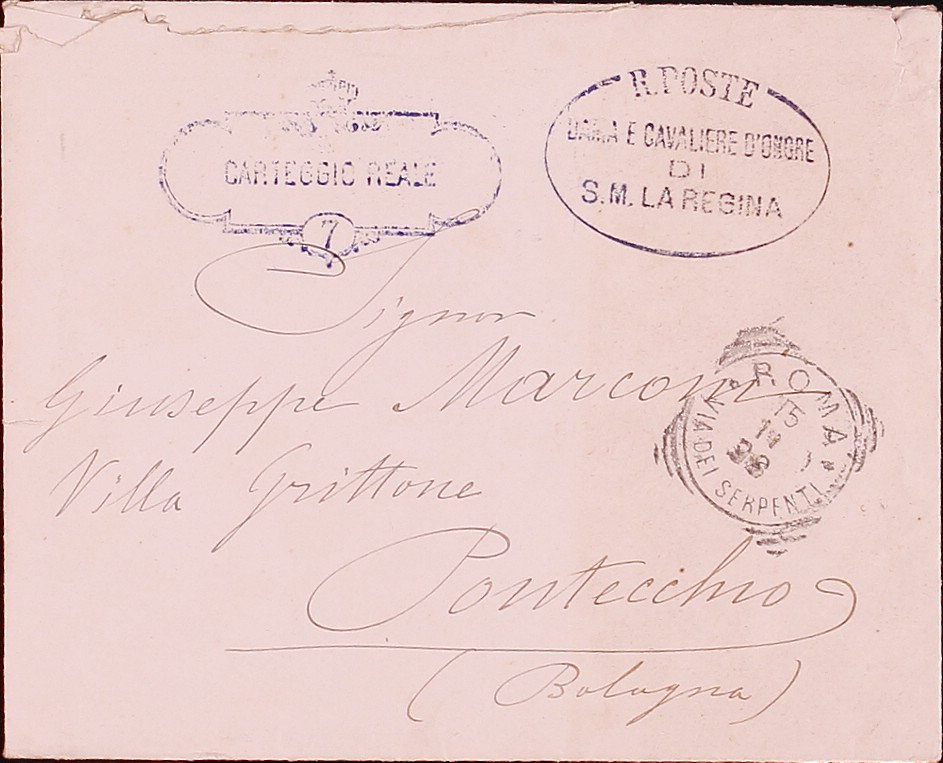 CARTEGGIO REALE
7
R. POSTE
DAMA E CAVALIERE D'ONORE
DI
S.M. LA REGINA
Signor
Giuseppe Marconi
Villa Grittone
Pontecchio
(Bologna)
ROMA
VIA DEI SERPENTI
15